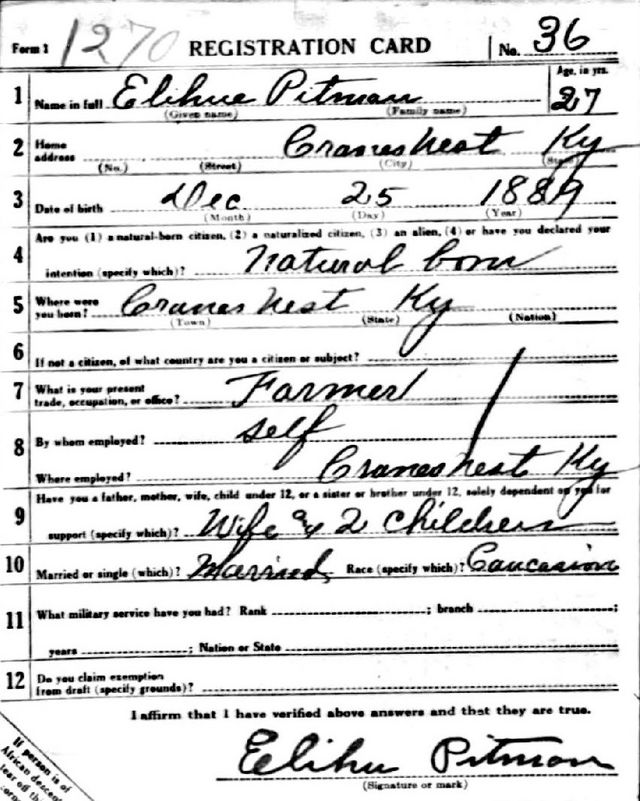 Form 1 1270 REGISTRATION CARD No. 36
1 Name in full Elihue Pitman Age, in yrs. 27
(Given name) (Family name)
2 Home address Cranes Nest Ky
(No.) (Street) (City) (State)
3 Date of birth Dec 25 1889
(Month) (Day) (Year)
4 Are you (1) a natural-born citizen, (2) a naturalized citizen, (3) an alien, (4) or have you declared your
intention (specify which)? Natural born
5 Where were you born? Cranes Nest Ky
(Town) (State) (Nation)
6 If not a citizen, of what country are you a citizen or subject?
7 What is your present trade, occupation, or office? Farmer
8 By whom employed? self
Where employed? Cranes nest Ky
9 Have you a father, mother, wife, child under 12, or a sister or brother under 12, solely dependent on you for
support (specify which)? Wife & 2 Children
10 Married or single (which)? Married Race (specify which)? Caucasion
11 What military service have you had? Rank ; branch ;
years ; Nation or State
12 Do you claim exemption from draft (specify grounds)?
I affirm that I have verified above answers and that they are true.
Elihu Pitman
(Signature or mark)
If person is of
African descent
tear off th
corne